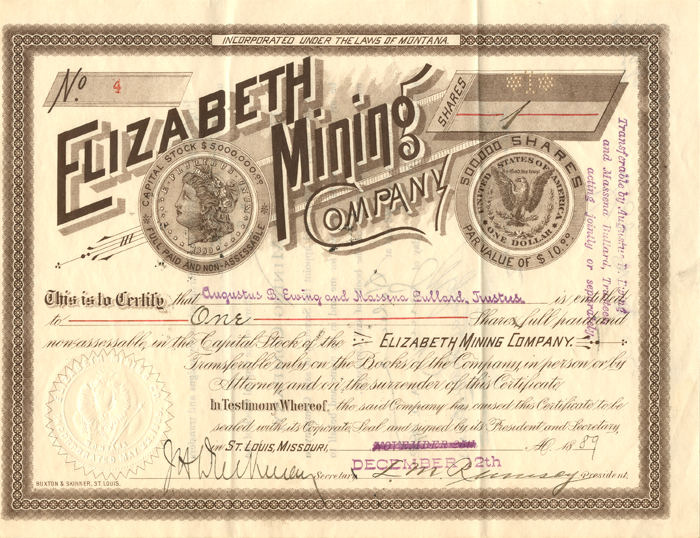 INCORPORATED UNDER THE LAWS OF MONTANA.
No 4
SHARES
1
ELIZABETH
Mining
COMPANY
CAPITAL STOCK $5,000,000.00
FULL PAID AND NON-ASSESSABLE
500,000 SHARES
UNITED STATES OF AMERICA
ONE DOLLAR
PAR VALUE OF $10.00
Transferable by Augustus B. Ewing
and Massena Bullard, Trustees
acting jointly or separately
This is to Certify that Augustus B. Ewing and Massena Bullard, Trustees is entitled
to One Shares full paid and
non-assessable, in the Capital Stock of the ELIZABETH MINING COMPANY.
Transferable only on the Books of the Company, in person or by
Attorney and on the surrender of this Certificate
In Testimony Whereof, the said Company has caused this Certificate to be
sealed with its Corporate Seal and signed by its President and Secretary,
in ST. LOUIS, MISSOURI, NOVEMBER A.D. 1889
DECEMBER 12th
Secretary President.
BUXTON & SKINNER, ST. LOUIS.